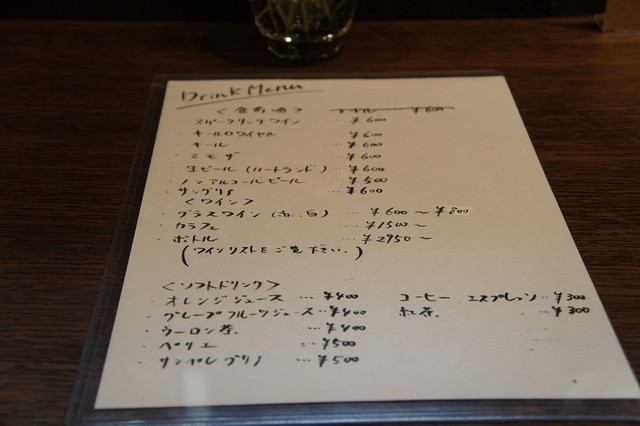 Drink Menu
〈食前酒〉
・スパークリングワイン ¥600
・キールロワイヤル ¥600
・キール … ¥600
・ミモザ … ¥600
・生ビール (ハートランド) … ¥600
・ノンアルコールビール ¥500
・サングリア … ¥600
〈ワイン〉
・グラスワイン (赤、白) … ¥600 〜 ¥800
・カラフェ … ¥1500 〜
・ボトル … ¥2950 〜
(ワインリストをご覧下さい。)
〈ソフトドリンク〉
・オレンジジュース … ¥400
・グレープフルーツジュース … ¥400
・ウーロン茶 … ¥400
・ペリエ … ¥500
・サンペレグリノ … ¥500
コーヒー エスプレッソ … ¥300
紅茶 … ¥300